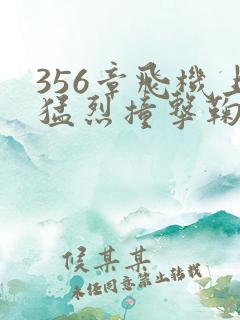 356章飛機上
猛烈撞撃鞠
候某某
未经同意禁止转载